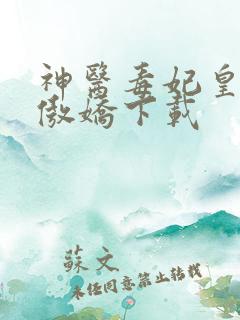 神醫毒妃皇
傲嬌下載
蘇文
未經同意禁止轉載